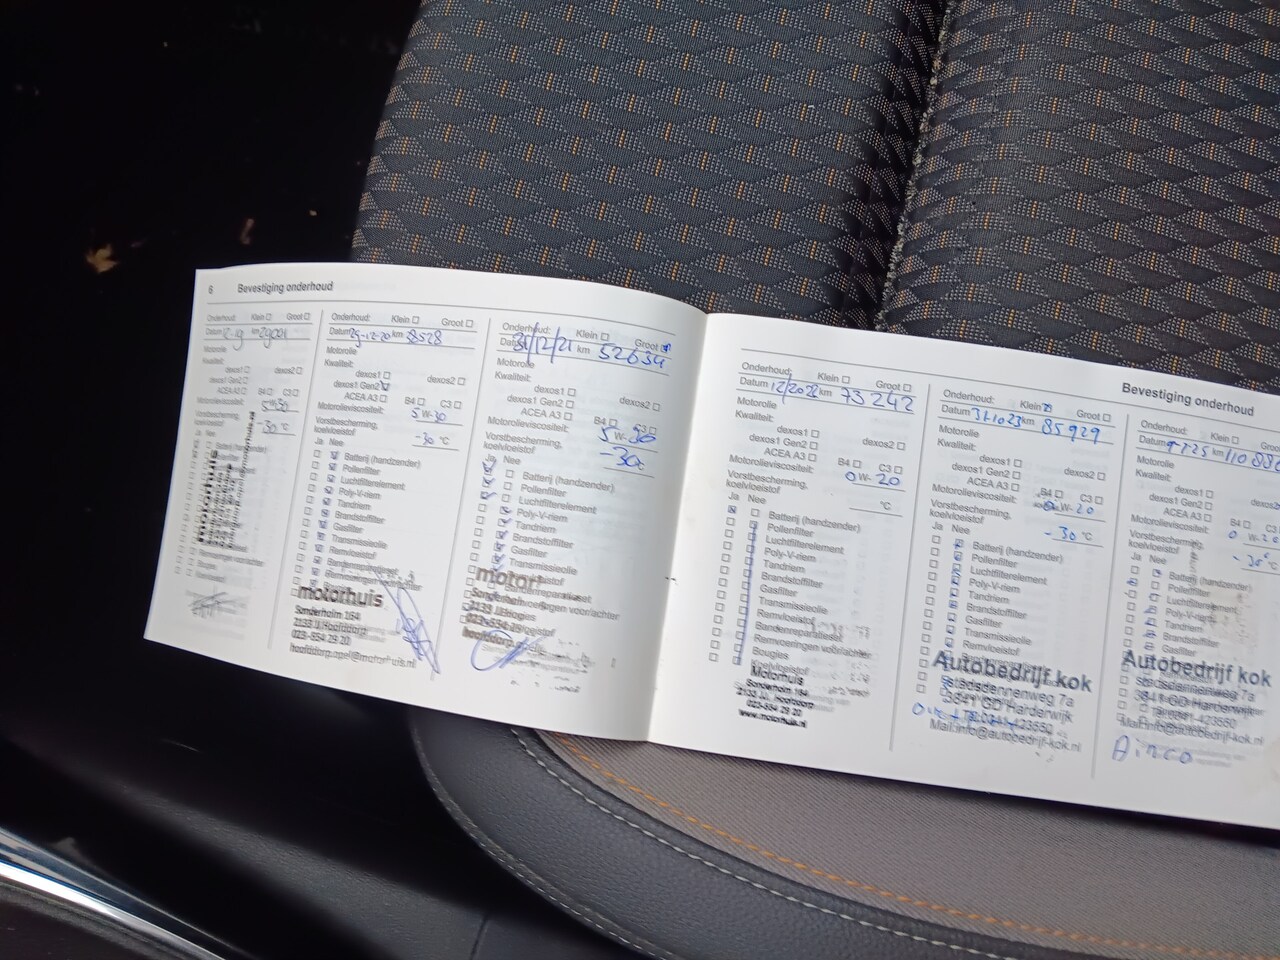 6 Bevestiging onderhoud
Onderhoud: Klein Groot
Datum km 29001
Motorolie
Kwaliteit:
dexos1 dexos2
dexos1 Gen2
ACEA A3 B4 C3
Motorolieviscositeit: 5W30
Vorstbescherming,
koelvloeistof -30 °C
Ja Nee
Batterij (handzender)
Onderhoud: Klein Groot
Datum 29-12-20 km 38528
Motorolie
Kwaliteit:
dexos1 dexos2
dexos1 Gen2
ACEA A3 B4 C3
Motorolieviscositeit: 5 W-30
Vorstbescherming,
koelvloeistof -30 °C
Ja Nee
Batterij (handzender)
Pollenfilter
Luchtfilterelement
Poly-V-riem
Tandriem
Brandstoffilter
Gasfilter
Transmissieolie
Remvloeistof
motorhuis
Sonderholm 164
2133 JJ Hoofddorp
023-554 29 20
hoofddorp.opel@motorhuis.nl
Onderhoud: Klein Groot
Datum 31/12/21 km 52634
Motorolie
Kwaliteit:
dexos1 dexos2
dexos1 Gen2
ACEA A3 B4 C3
Motorolieviscositeit: 5 W-30
Vorstbescherming,
koelvloeistof -30
Ja Nee
Batterij (handzender)
Pollenfilter
Luchtfilterelement
Poly-V-riem
Tandriem
Brandstoffilter
Gasfilter
Transmissieolie
Bevestiging onderhoud
Onderhoud: Klein Groot
Datum 12/2022 km 73242
Motorolie
Kwaliteit:
dexos1 dexos2
dexos1 Gen2
ACEA A3 B4 C3
Motorolieviscositeit: 0 W-20
Vorstbescherming,
koelvloeistof °C
Ja Nee
Batterij (handzender)
Pollenfilter
Luchtfilterelement
Poly-V-riem
Tandriem
Brandstoffilter
Gasfilter
Transmissieolie
Remvloeistof
Bandenreparatieset
Remvoeringen voor/achter
Bougies
Koelvloeistof
Motorhuis
Sonderholm 164
2133 JJ, Hoofddorp
023-554 29 20
www.motorhuis.nl
Onderhoud: Klein Groot
Datum 31.1023 km 85929
Motorolie
Kwaliteit:
dexos1 dexos2
dexos1 Gen2
ACEA A3 B4 C3
Motorolieviscositeit: 0 W-20
Vorstbescherming,
koelvloeistof -30 °C
Ja Nee
Batterij (handzender)
Pollenfilter
Luchtfilterelement
Poly-V-riem
Tandriem
Brandstoffilter
Gasfilter
Transmissieolie
Remvloeistof
Autobedrijf kok
Stadsdennenweg 7a
3841 GD Harderwijk
Tel: 0341-423550
Mail:info@autobedrijf-kok.nl
Onderhoud: Klein Groot
Datum km
Motorolie
Kwaliteit:
dexos1 dexos2
dexos1 Gen2
ACEA A3 B4 C3
Motorolieviscositeit: 0 W-20
Vorstbescherming,
koelvloeistof -30 °C
Ja Nee
Batterij (handzender)
Pollenfilter
Luchtfilterelement
Poly-V-riem
Tandriem
Brandstoffilter
Gasfilter
Autobedrijf kok
Stadsdennenweg 7a
3841 GD Harderwijk
Tel: 0341-423550
Mail:info@autobedrijf-kok.nl
Airco